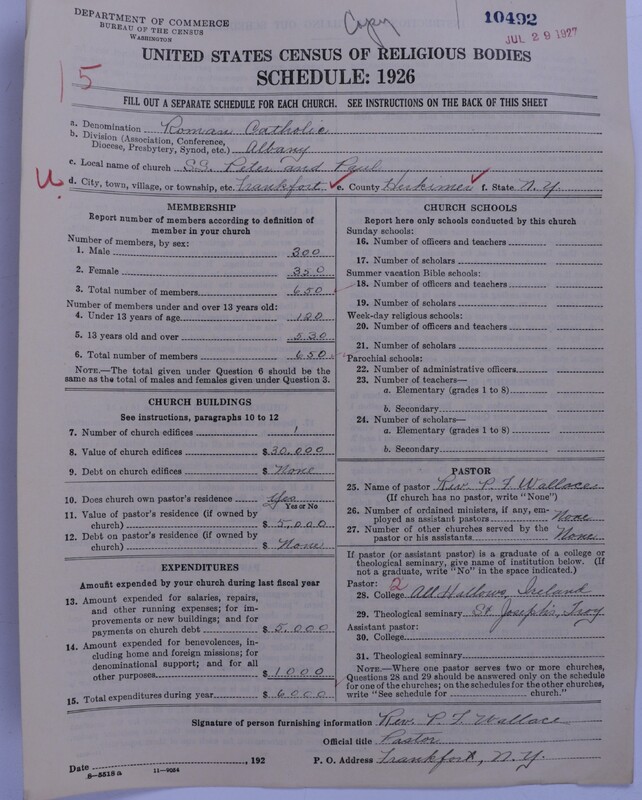 DEPARTMENT OF COMMERCE
BUREAU OF THE CENSUS
WASHINGTON
Copy
10492
JUL 29 1927
UNITED STATES CENSUS OF RELIGIOUS BODIES
SCHEDULE: 1926
15
FILL OUT A SEPARATE SCHEDULE FOR EACH CHURCH. SEE INSTRUCTIONS ON THE BACK OF THIS SHEET
a. Denomination Roman Catholic
b. Division (Association, Conference, Diocese, Presbytery, Synod, etc.) Albany
c. Local name of church S.S. Peter and Paul
d. City, town, village, or township, etc. Frankfort e. County Herkimer f. State N.Y.
MEMBERSHIP
Report number of members according to definition of
member in your church
Number of members, by sex:
1. Male 300
2. Female 350
3. Total number of members 650
Number of members under and over 13 years old:
4. Under 13 years of age 120
5. 13 years old and over 530
6. Total number of members 650
NOTE.—The total given under Question 6 should be
same as the total of males and females given under Question 3.
CHURCH BUILDINGS
See instructions, paragraphs 10 to 12
7. Number of church edifices 1
8. Value of church edifices $30,000
9. Debt on church edifices $ None
10. Does church own pastor's residence Yes
Yes or No
11. Value of pastor's residence (if owned by
church) $5,000
12. Debt on pastor's residence (if owned by
church) $ None
EXPENDITURES
Amount expended by your church during last fiscal year
13. Amount expended for salaries, repairs,
and other running expenses; for im-
provements or new buildings; and for
payments on church debt $5,000
14. Amount expended for benevolences, in-
cluding home and foreign missions; for
denominational support; and for all
other purposes $1000
15. Total expenditures during year $6000
CHURCH SCHOOLS
Report here only schools conducted by this church
Sunday schools:
16. Number of officers and teachers
17. Number of scholars
Summer vacation Bible schools:
18. Number of officers and teachers
19. Number of scholars
Week-day religious schools:
20. Number of officers and teachers
21. Number of scholars
Parochial schools:
22. Number of administrative officers
23. Number of teachers—
a. Elementary (grades 1 to 8)
b. Secondary
24. Number of scholars—
a. Elementary (grades 1 to 8)
b. Secondary
PASTOR
25. Name of pastor Rev. P. F. Wallace
(If church has no pastor, write "None")
26. Number of ordained ministers, if any, em-
ployed as assistant pastors None
27. Number of other churches served by the
pastor or his assistants None
If pastor (or assistant pastor) is a graduate of a college or
theological seminary, give name of institution below. (If
not a graduate, write "No" in the space indicated.)
Pastor: 2
28. College All Hallows, Ireland
29. Theological seminary St. Joseph's, Troy
Assistant pastor:
30. College
31. Theological seminary
NOTE.—Where one pastor serves two or more churches,
Questions 28 and 29 should be answered only on the schedule
for one of the churches; on the schedules for the other churches,
write "See schedule for church."
Signature of person furnishing information Rev. P. F. Wallace
Official title Pastor
Date , 192 P. O. Address Frankfort, N.Y.
8-5518a 11-9054